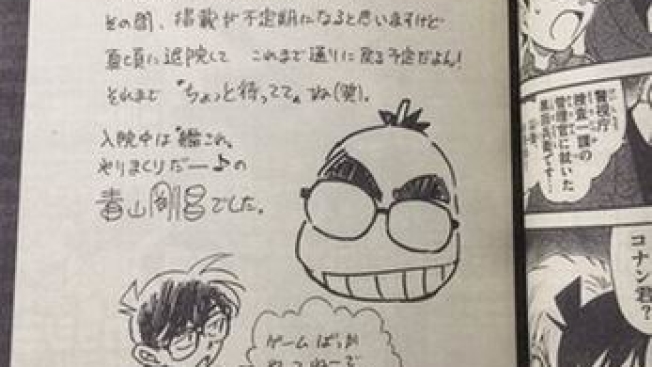 その間、掲載が不定期になると思いますけど
夏頃に退院して これまで通りに戻る予定だよん!
それまで "ちょっと待ってて"ね(笑)。
入院中は"艦これ"
やりまくりだー♪の
青山剛昌でした。
ゲームばっか
やってねーで
警視庁
捜査一課の
管理官に就いた
黒田兵衛です…
コナン君?